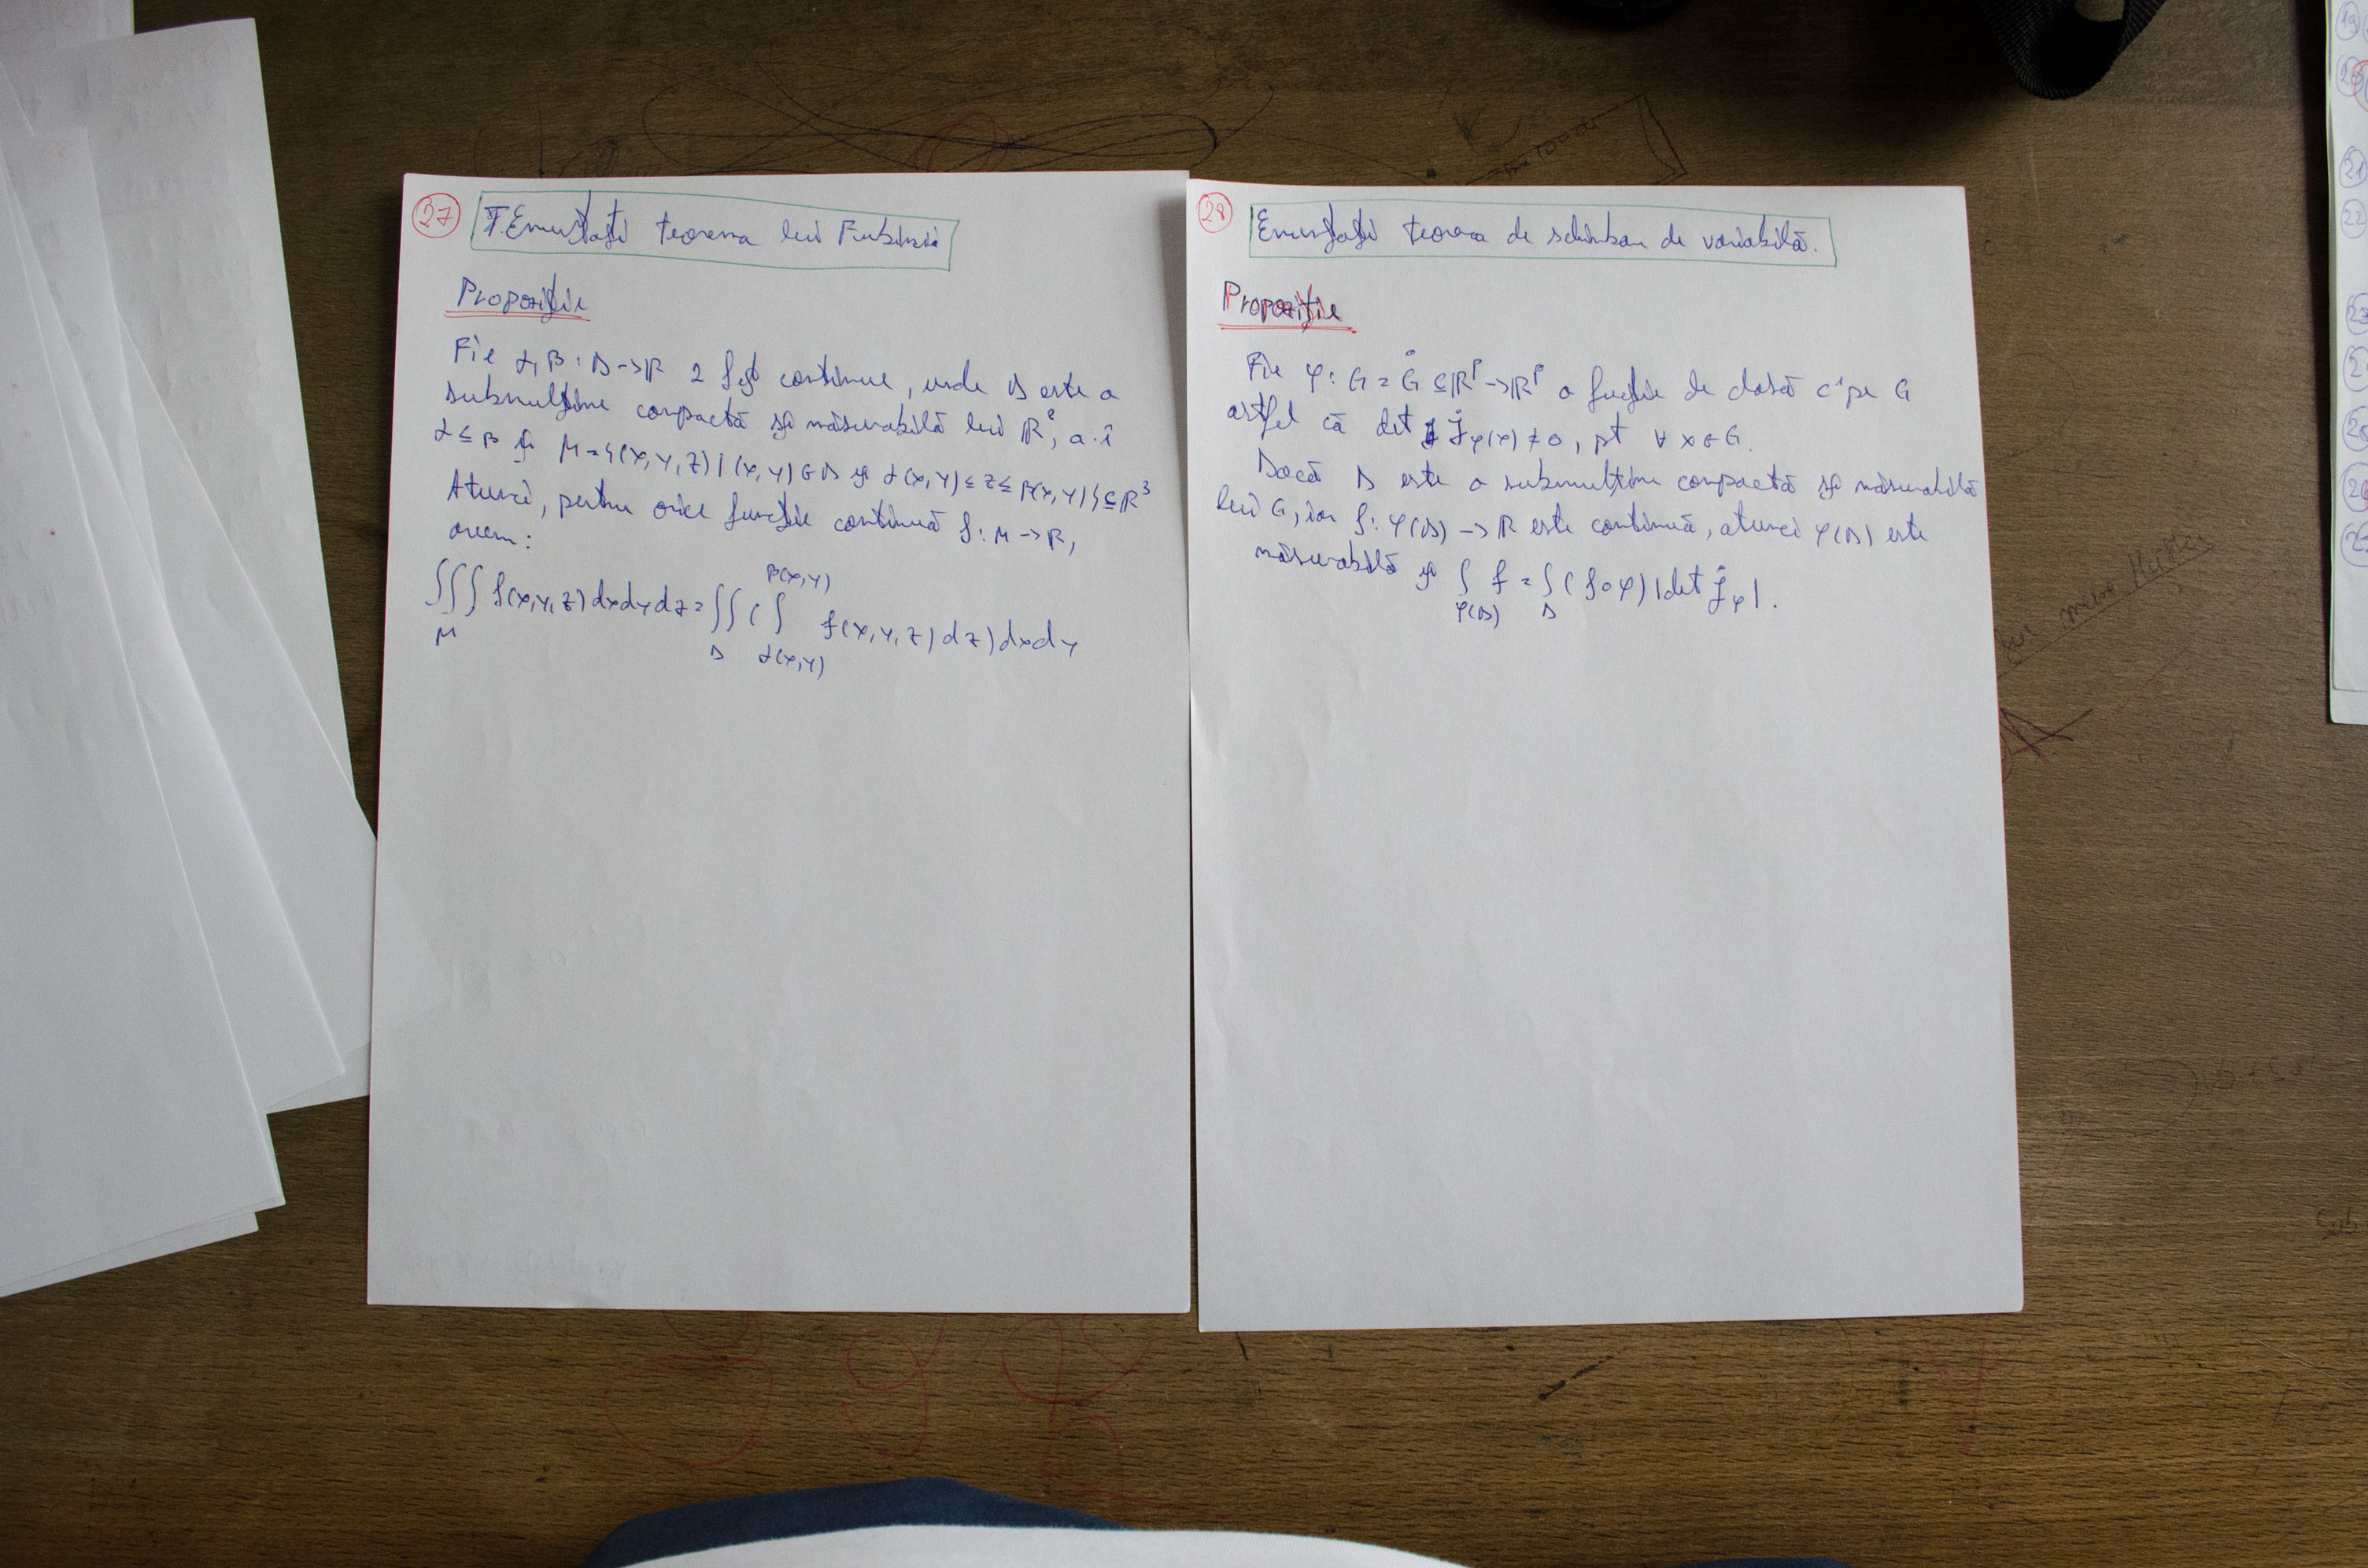 27
Enunțați teorema lui Fubini
Propoziție
Fie α, β : D → ℝ 2 fcț continue, unde D este o
submulțime compactă și măsurabilă lui ℝ², a.î
α ≤ β și M = {(x, y, z) | (x, y) ∈ D și α(x, y) ≤ z ≤ β(x, y)} ⊆ ℝ³
Atunci, pentru orice funcție continuă f : M → ℝ,
avem:
∫∫∫_M f(x, y, z) dx dy dz = ∫∫_D ( ∫_{α(x,y)}^{β(x,y)} f(x, y, z) dz) dx dy
28
Enunțați teorema de schimbare de variabilă.
Propoziție
Fie φ : G = G̊ ⊆ ℝᵖ → ℝᵖ o funcție de clasă C¹ pe G
astfel că det J_φ(x) ≠ 0, pt ∀ x ∈ G.
Dacă D este o submulțime compactă și măsurabilă
lui G, iar f : φ(D) → ℝ este continuă, atunci φ(D) este
măsurabilă și ∫_{φ(D)} f = ∫_D (f ∘ φ) |det J_φ|.
19
21
22